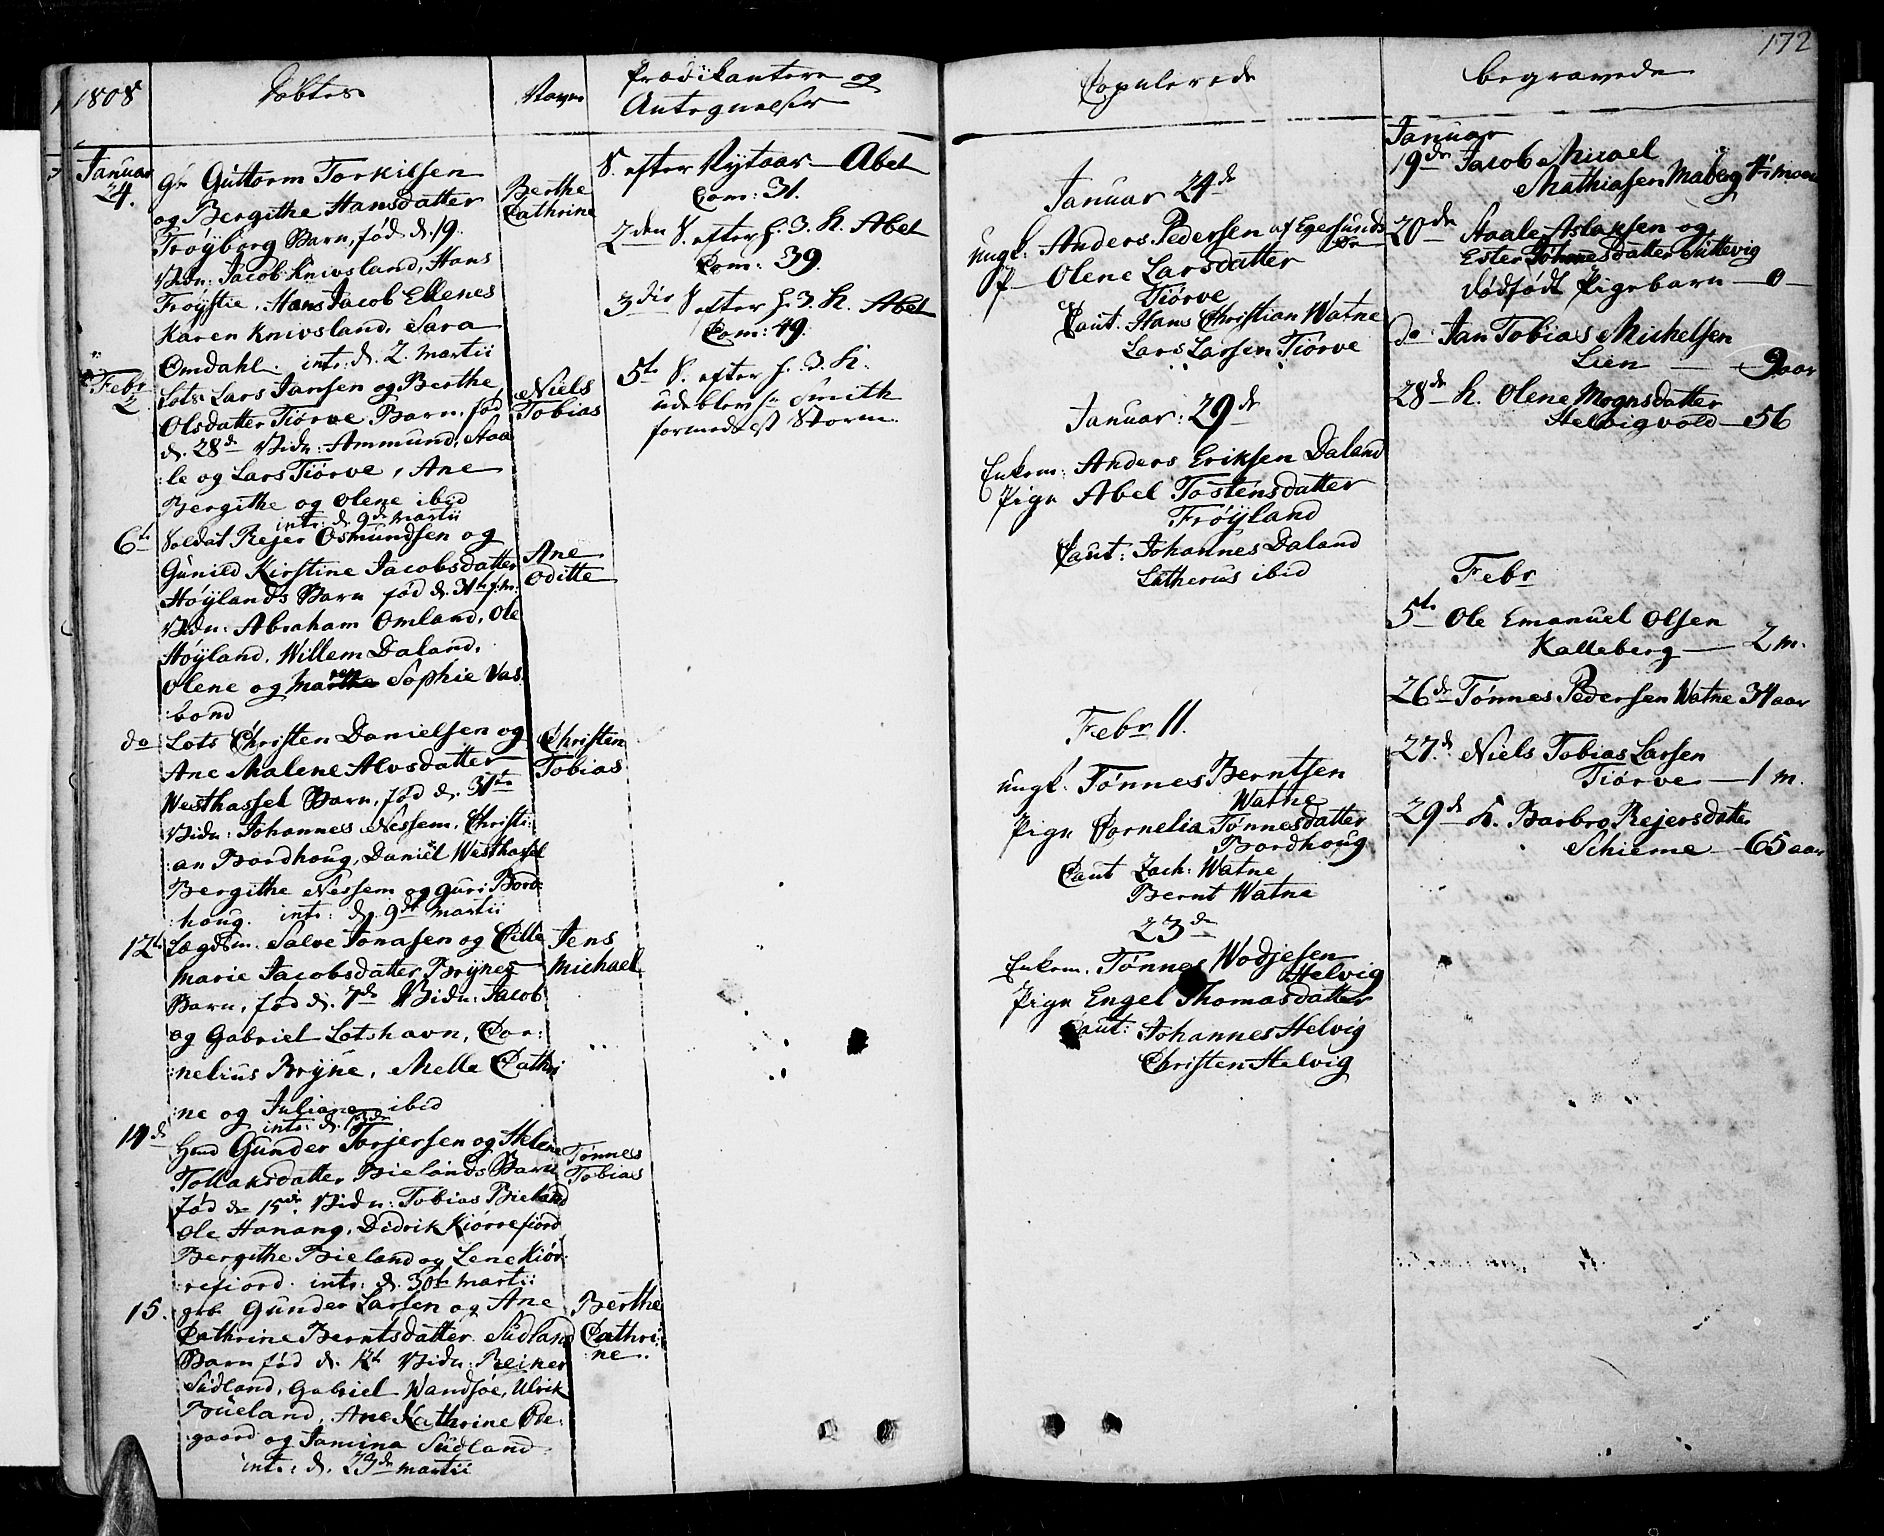 172
1808
Döbte
Navn
Prædikantere og
Antegnelser
Januar
24.
Gbr Guttorm Torkilsen
og Bergithe Hansdatter
Fröyborg Barn, fød d. 19.
Vidn: Jacob Knivsland, Hans
Fröystie, Hans Jacob Ellenes
Karen Knivsland, Sara
Omdahl. intr: d. 2. Martii
Berthe
Cathrine
Febr
2
Lots Lars Jansen og Berthe
Olsdatter Tiørve Barn, fød
d. 28de Vidn: Ammund, Staa
:le og Lars Tiørve, Ane
Bergithe og Olene ibid
intr: d. 9de Martii
Niels
Tobias
6te
Soldat Rejer Osmundsen og
Gunild Kirstine Jacobsdatter
Høylands Barn fød d. 31te f.m.
Vidn: Abraham Omland, Ole
Høyland, Willem Daland,
Olene og Sophie Vas
:bond
Ane
Oditte
do
Lots Christen Danielsen og
Ane Malene Alvsdatter
Westhassel Barn, fød d. 31te
Vidn: Johannes Nessem, Christi:
:an Bordhoug, Daniel Westhassel
Bergithe Nessem og Guri Bord:
:houg. intr: d. 9de Martii
Christen
Tobias
12te
Lægdsm. Salve Jonasen og Cille
Marie Jacobsdatter Brynes
Barn, fød d. 7de Vidn: Jacob
og Gabriel Lotshavn, Cor:
:nelius Bryne, Melle Cathri
:ne og Juliane ibid
intr: d.
Jens
Michael
14de
Gunder Torjersen og Helene
Tollaksdatter Bielands Barn
fød d. 15de. Vidn: Tobias Bieland
Ole Hanang, Didrik Kiörrefiord
Bergithe Bieland og Lene Kiör:
:refiord. intr: d. 30te Martii
Tønnes
Tobias
15.
gbr Gunder Larsen og Ane
Cathrine Berntsdatter Sudland
Barn fød d. 12te Vidn: Reiner
Sudland, Gabriel Wandsøe, Ulrik
Büeland, Ane Kathrine Øde:
:gaard og Jamina Sudland
intr: d. 23de Martii
Berthe
Cathri:
:ne..
S. efter Nytaar Abel
Com: 31.
2den S. efter h. 3. K. Abel
Com: 39.
3die S. efter h. 3. K. Abel
Com: 49.
5te S. efter h. 3. K.
udeblev hr Smith
formedelst Storm.
Copulerede
Januar 24de
Ungk. Anders Pedersen af Egersund
P Olene Larsdatter
Tiörve
Caut. Hans Christian Watne
Lars Larsen Tiörve
Januar: 29de
Enkem: Anders Eriksen Daland
Pige Abel Tostensdatter
Fröyland
Caut: Johannes Daland
Lutherus ibid
Febr 11.
Ungk. Tönnes Berntsen
Watne
Pige Cornelia Tönnesdatter
Bordhoug
Caut Zach: Watne
Bernt Watne
23de
Enkem. Tönnes Wodjesen
Helvig
Pige Engel Thomasdatter
Caut: Johannes Helvig
Christen Helvig
begravede
Januar
19de Jacob Micael
Mathiasen Maberg
20de Staale Aslaksen og
Ester Johannesdatter
dödfödt Pigebarn — 0 —
do Jan Tobias Michelsen
Lien — 9 aar
28de K. Olene Mognsdatter
Helvigvold — 56
Febr
5te Ole Emanuel Olsen
Kalleberg — 2 m.
26de Tönnes Pedersen Watne 34 aar
27de Niels Tobias Larsen
Tiörve — 1 m.
29de K. Barbro Rejersdatter
Schieme — 65 aar